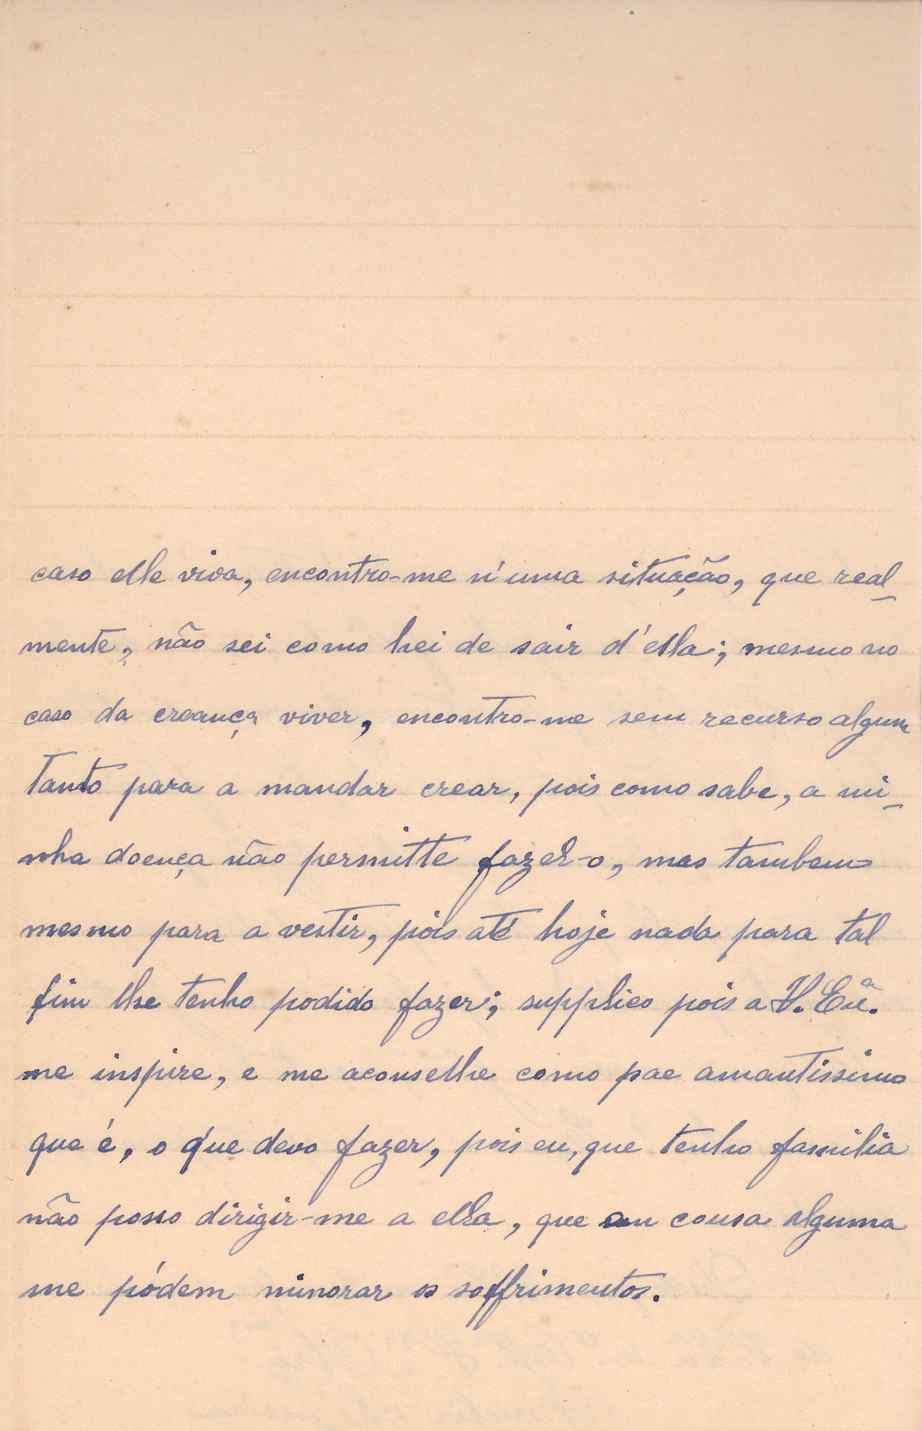 caso elle viva, encontro-me n'uma situação, que real-
mente, não sei como hei de sair d'ella; mesmo no
caso da creança viver, encontro-me sem recurso algum
tanto para a mandar crear, pois como sabe, a mi-
nha doença não permitte fazel-o, mas tambem
mesmo para a vestir, pois até hoje nada para tal
fim lhe tenho podido fazer; supplico pois a V. Exª.
me inspire, e me aconselhe como pae amantissimo
que é, o que devo fazer, pois eu, que tenho familia
não posso dirigir-me a ella, que em cousa alguma
me pódem minorar os soffrimentos.